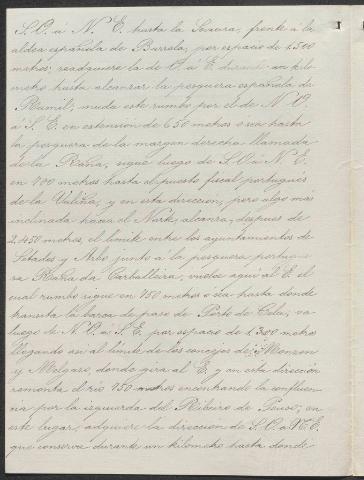 S. O. á N. E. hasta la Sivura, frente á la
aldea española de Barreta, por espacio de 1.500
metros: readquiere la de O. á E. durante un kiló-
metro hasta alcanzar la pesquera española de
Ramil; muda este rumbo por el de N. O.
á S. E. en estension de 650 metros ó sea hasta
la pesquera de la margen derecha llamada
de la Raña, sigue luego de S. O. á N. E.
en 700 metros hasta el puesto fiscal portugués
de la Valiña, y en esta direccion, pero algo mas
inclinada hácia el Norte, alcanza, despues de
2.450 metros, el límite entre los ayuntamientos de
Setados y Arbo junto á la pesquera portugue-
sa Raña da Carballeira, vuelve aquí al E. el
cual rumbo sigue en 750 metros ó sea hasta donde
transita la barca de paso de Porto de Cela; va
luego de N. O. á S. E. por espacio de 1.300 metros
llegando así al límite de los concejos de Monzon
y Melgazo, donde gira al E. y en esta direccion
remonta el rio 950 metros encontrando la confluen-
cia por la izquierda del Ribeiro de; en
este lugar, adquiere la direccion de S. O. á N. E.
que conserva durante un kilómetro hasta donde